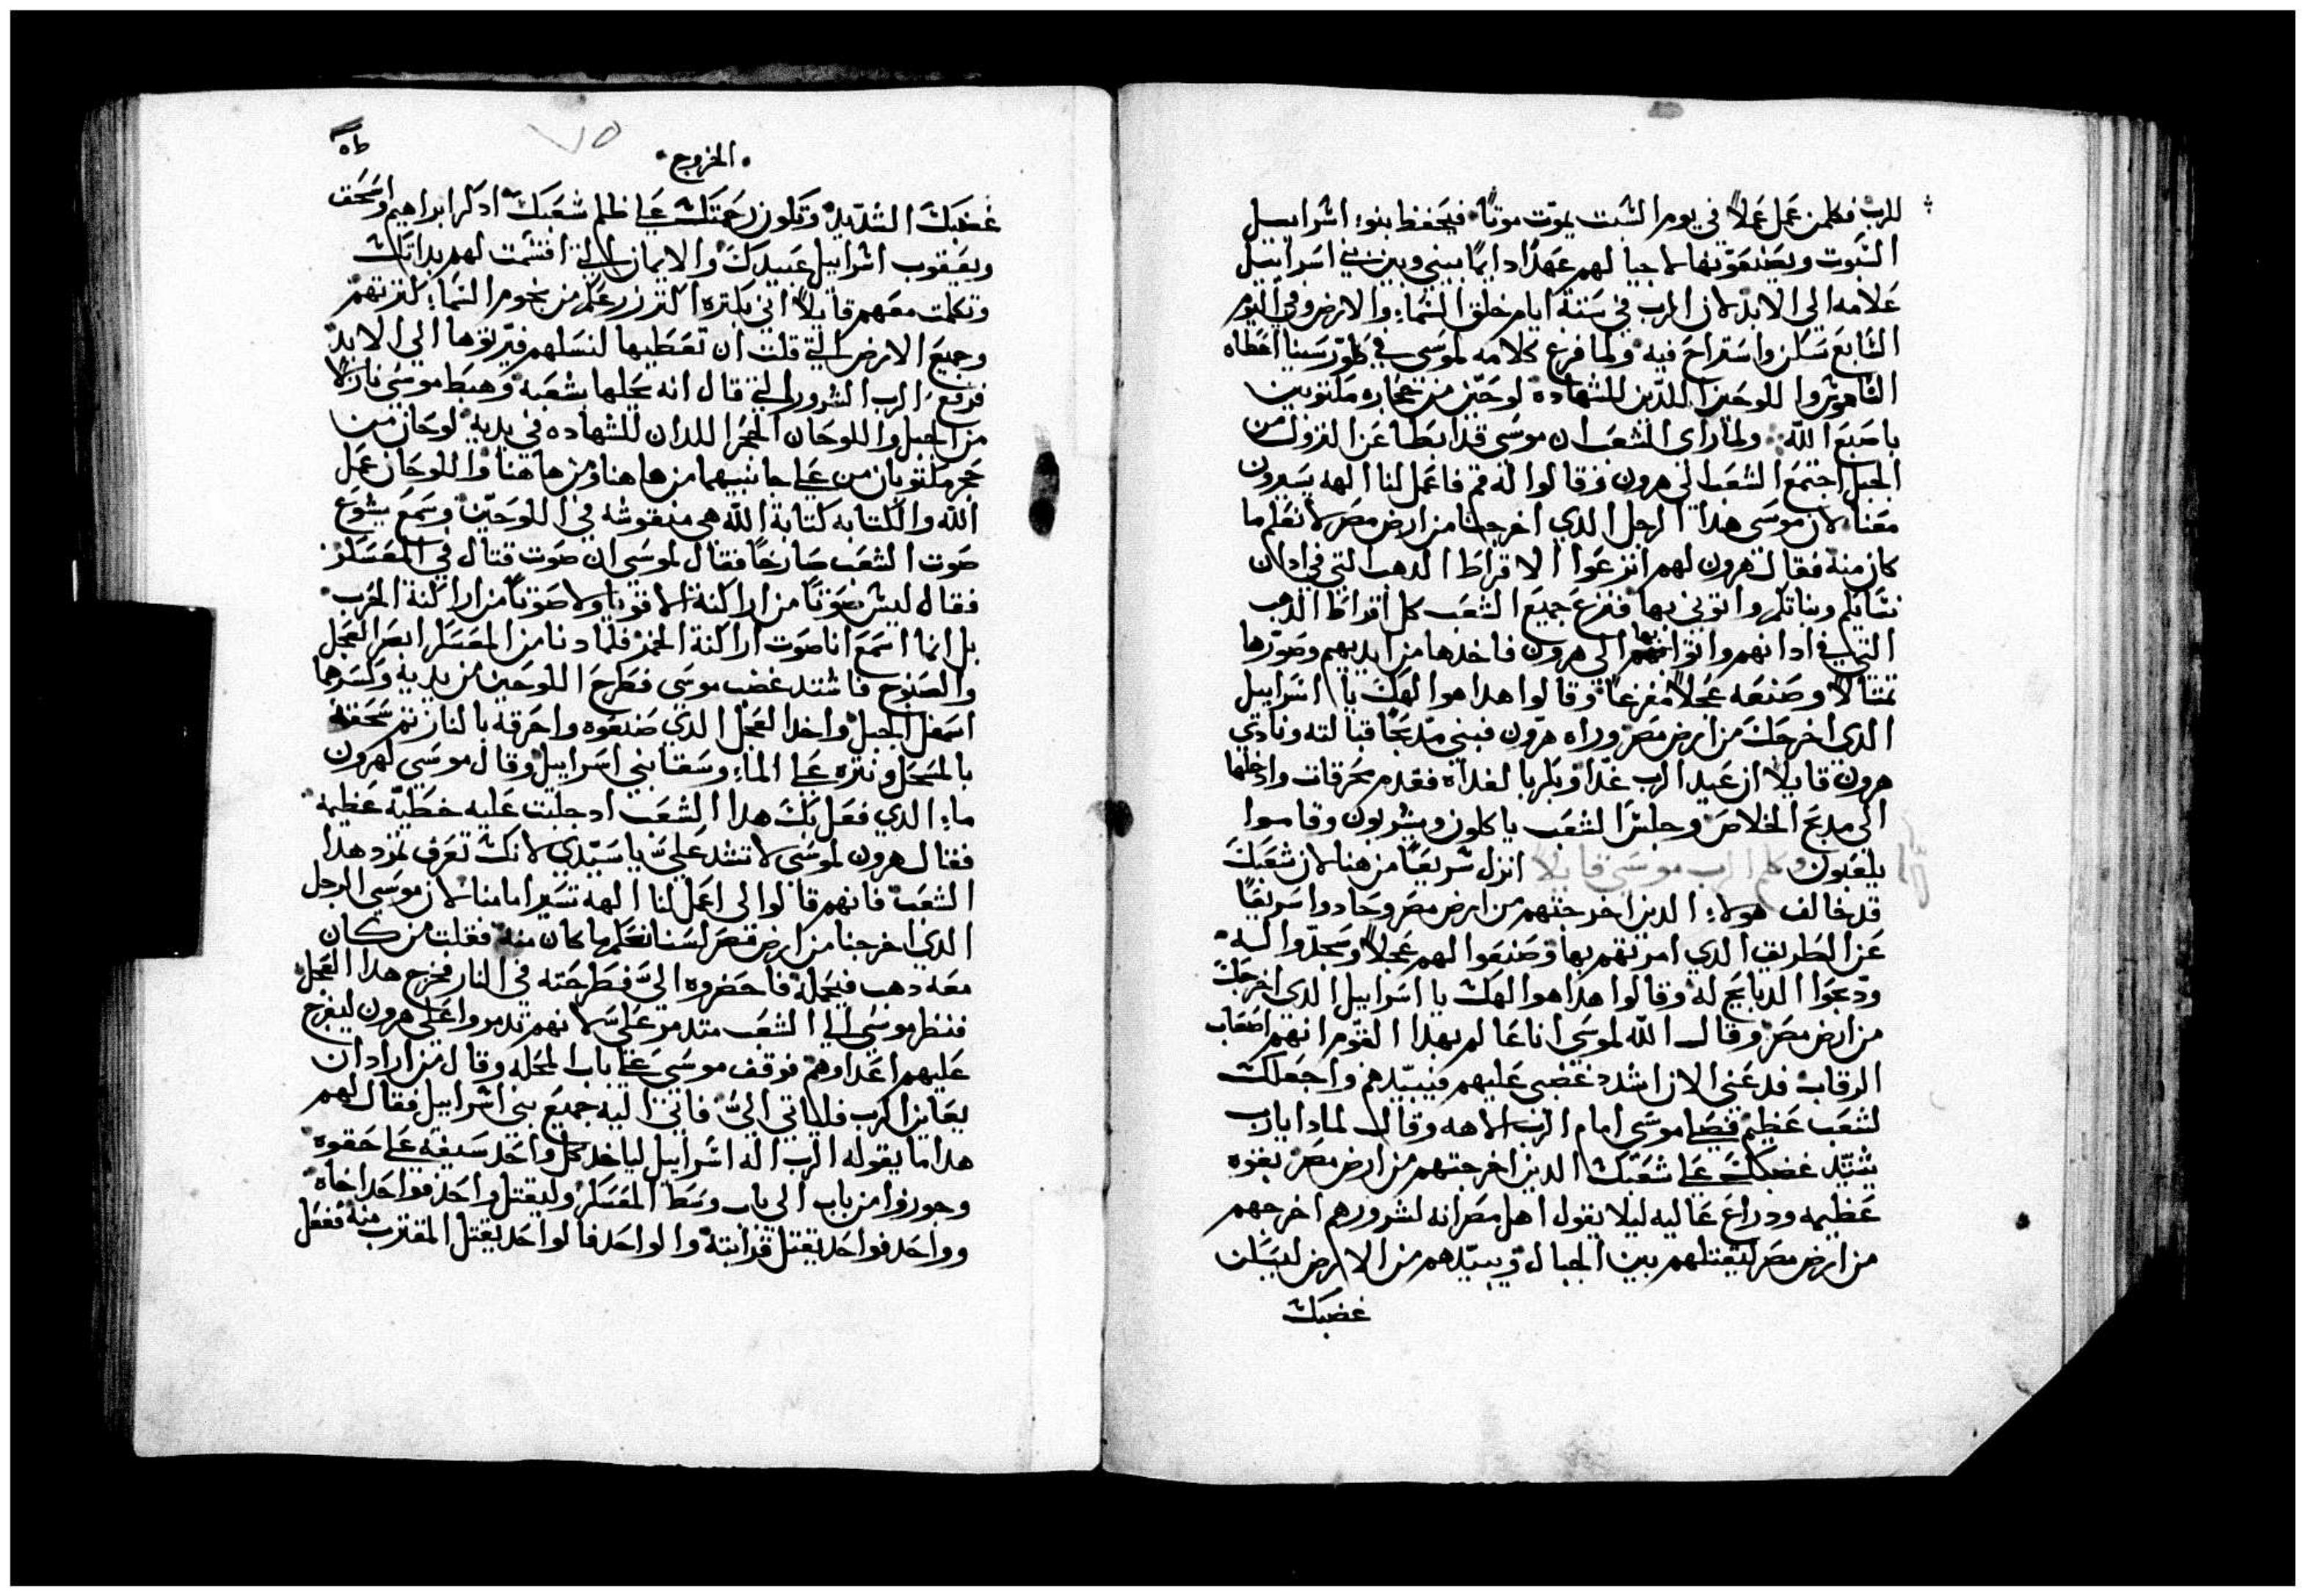 للرب فكلمن عمل عملاً في يوم السبت يموت موتاً فيحفظ بنو اسراييل
السبوت ويصنعونها لاجيالهم عهداً دايماً بيني وبين بني اسراييل
علامه الي الابد لان الرب في ستة ايام خلق السماء والارض وفي اليوم
السابع سكن واستراح فيه ولما فرغ كلامه لموسي في طور سينا اعطاه
الناموس واللوحين اللذين للشهادة لوحين من حجاره مكتوبين
باصبع الله ولما راي الشعب ان موسي قد ابطا عن النزول من
الجبل اجتمع الشعب الي هرون وقالوا له قم فاعمل لنا الهه يسيرون
معنا لان موسي هدا الرجل الدي اخرجنا من ارض مصر لا نعلم ما
كان منه فقال هرون لهم انزعوا الاقراط الدهب التي في ادان
نسايكم وبناتكم واتوني بها فنزع جميع الشعب كل اقراط الدهب
التي في ادانهم واتوا بها الي هرون فاخدها من ايديهم وصورها
تمتالاً وصنعه عجلاً مفرغاً وقالوا هدا هو الهك يا اسراييل
الدي اخرجك من ارض مصر وراه هرون فبني مدبحاً قبالته ونادي
هرون قايلاً ان عيد الرب غداً وبكر بالغداه فقدم محرقات وادخلها
الي مدبح الخلاص وجلس الشعب ياكلون ويشربون وقاموا
يلعبون وكلم الرب موسي قايلاً انزل سريعاً من هنا لان شعبك
قد خالف هولاء الدين اخرجتهم من ارض مصر وحادوا سريعاً
عن الطريق الدي امرتهم بها وصنعوا لهم عجلاً وسجدوا له
ودبحوا الدبايح له وقالوا هدا هو الهك يا اسراييل الدي اخرجك
من ارض مصر وقال الله لموسي انا عالم بهدا القوم انهم اصعاب
الرقاب فدعني الان اشدد غضبي عليهم فنبيدهم واجعلك
لشعب عظيم فصلي موسي امام الرب الاهه وقال لمادا يارب
يشتد غضبك علي شعبك الدين اخرجتهم من ارض مصر بقوه
عظيمه ودراع عاليه ليلا يقول اهل مصر انه لشرورهم اخرجهم
من ارض مصر ليقتلهم بين الجبال ويبيدهم من الارض ليسكن
غضبك
الخروج
٧٥
غضبك الشديد وتكون رحمتك علي ظلم شعبك ادكر ابراهيم واسحق
ويعقوب اسراييل عبيدك والايمان التي اقسمت لهم بداتك
وتكلمت معهم قايلاً اني بكتره اكتر زرعكم من نجوم السماء لكترتهم
وجميع الارض التي قلت ان تعطيها لنسلهم فيرتوها الي الابد
فرفع الرب الشرور التي قال انه يحلها بشعبه وهبط موسي نازلاً
من الجبل واللوحان الحجر اللدان للشهاده في يديه لوحان من
حجر مكتوبان من علي جانبيهما من هاهنا ومن هاهنا واللوحان عمل
الله والكتابه كتابة الله هي منقوشه في اللوحين وسمع يشوع
صوت الشعب صارخاً فقال لموسي ان صوت قتال في المعسكر
فقال ليس صوتاً من اراكنة الاقويا ولا صوتاً من اراكنة الحرب
بل انما اسمع انا صوت اراكنة الخمر فلما دنا من المعسكر ابصر العجل
والصنوج فاشتد غضب موسي فطرح اللوحين من يديه وكسرها
اسفل الجبل واخد العجل الدي صنعوه واحرقه بالنار تم سحقه
بالمسحل ونتره علي الماء وسقا بني اسراييل وقال موسي لهرون
ماء الدي فعل بك هدا الشعب اد جلبت عليه خطية عظيمه
فقال هرون لموسي لا تشتد علي يا سيدي لانك تعرف تمرد هدا
الشعب فانهم قالوا لي اعمل لنا الهه تسير امامنا لان موسي الرجل
الدي اخرجنا من ارض مصر لسنا نعلم ما كان منه فقلت من كان
معه دهب فيحمله فاحضروه الي فطرحته في النار فخرج هدا العجل
فنظر موسي الي الشعب متدمر علي سلانهم تدمروا علي هرون ليفرح
عليهم اعداوهم فوقف موسي علي باب المحله وقال من اراد ان
يعاين الرب فلياتي الي فاتي اليه جميع بني اسراييل فقال لهم
هدا ما يقوله الرب اله اسراييل لياخد كل واحد سيفه علي حقوه
وجوزوا من باب الي باب وسط المعسكر وليقتل واحد فواحد اخاه
وواحد فواحد يقتل قرابته والواحد فالواحد يقتل المقترب منه ففعل